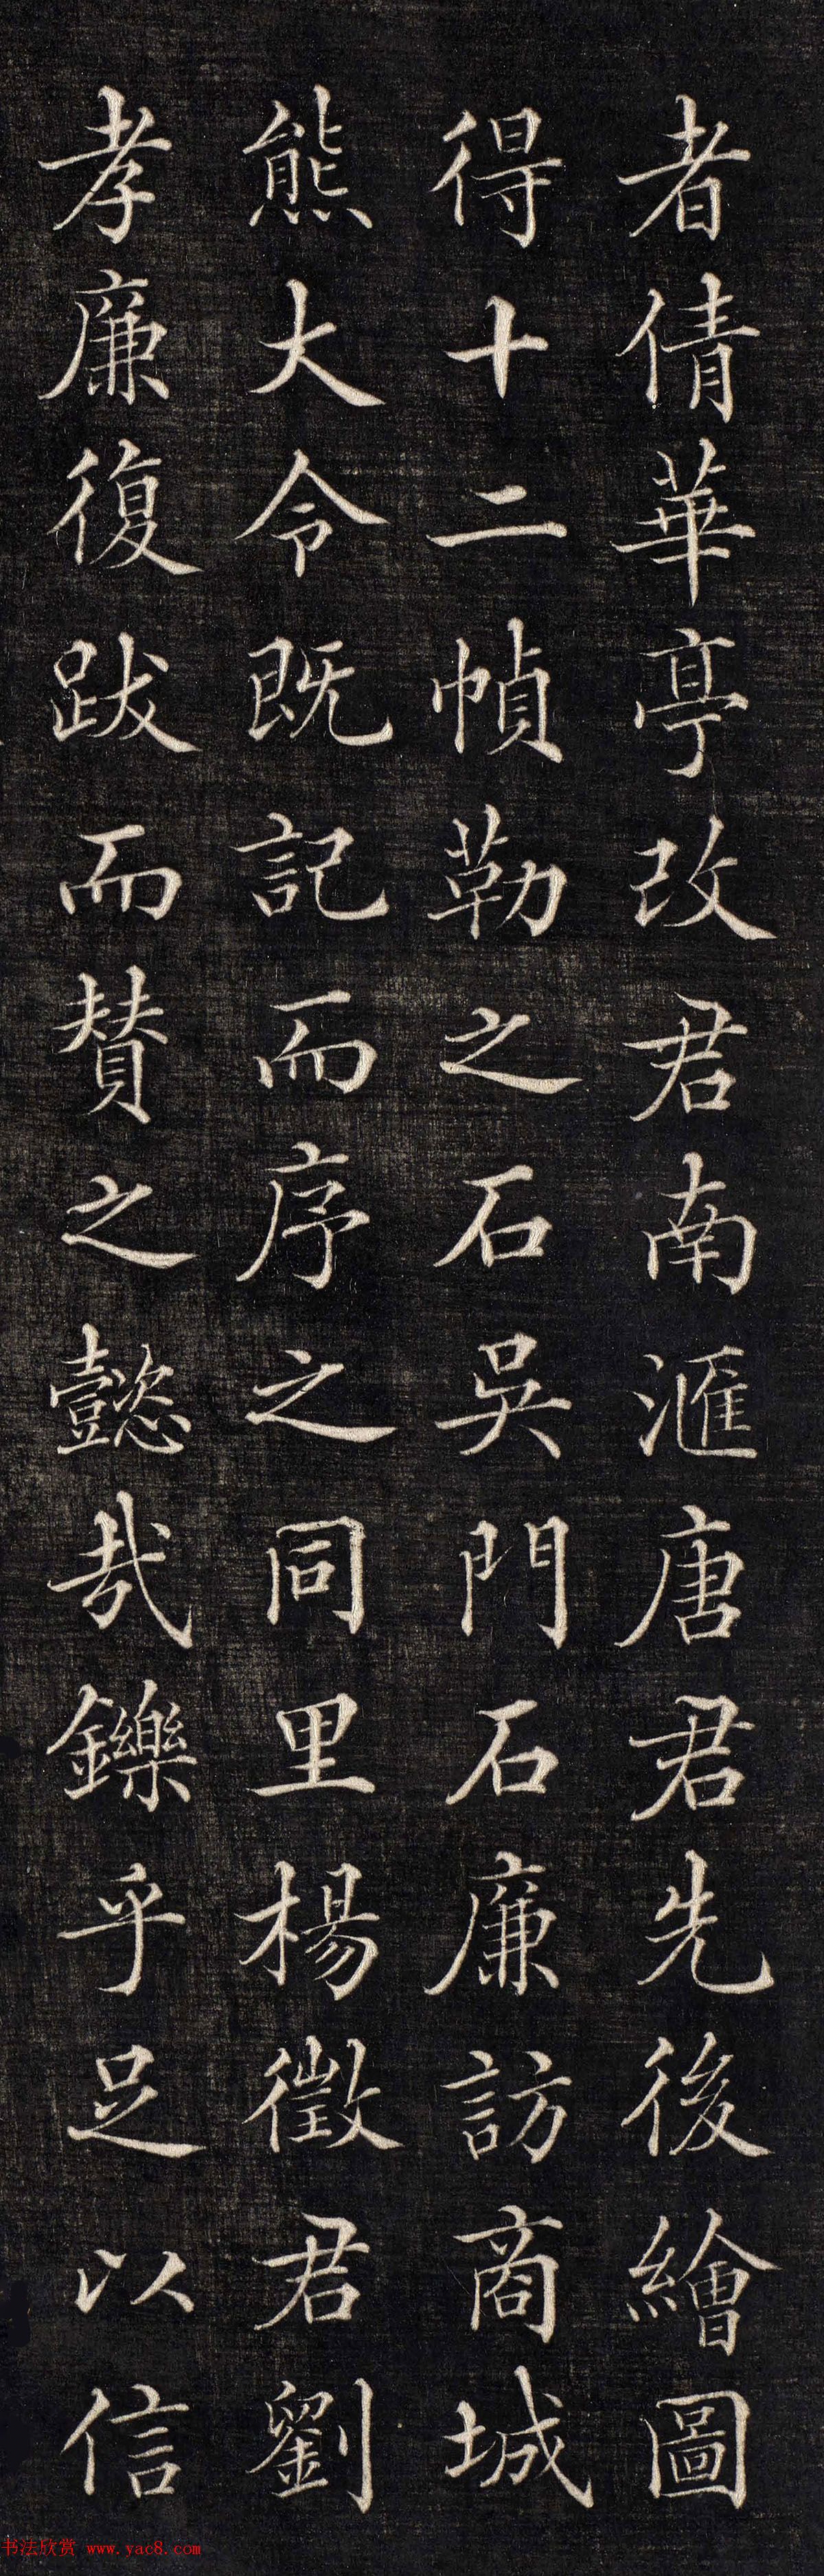 者倩華亭改君南滙唐君先後繪圖
得十二幀勒之石吳門石廉訪商城
熊大令既記而序之同里楊徵君劉
孝廉復跋而賛之懿哉鑠乎足以信
书法欣赏 www.yac8.com